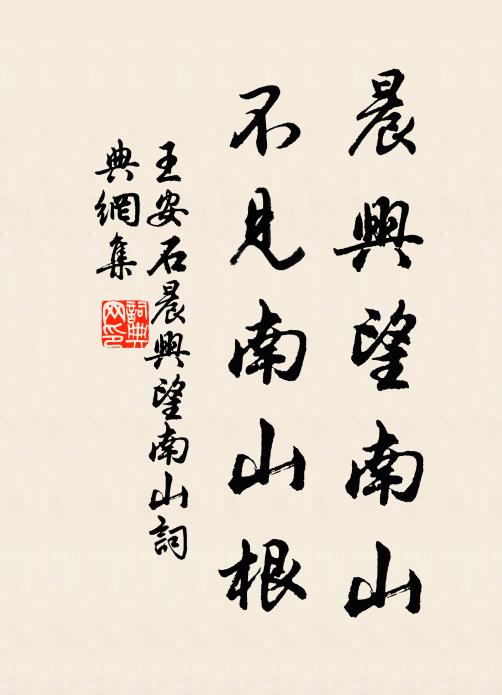 晨興望南山
不見南山根
王安石晨興望南山詞
典網集
詞典網印